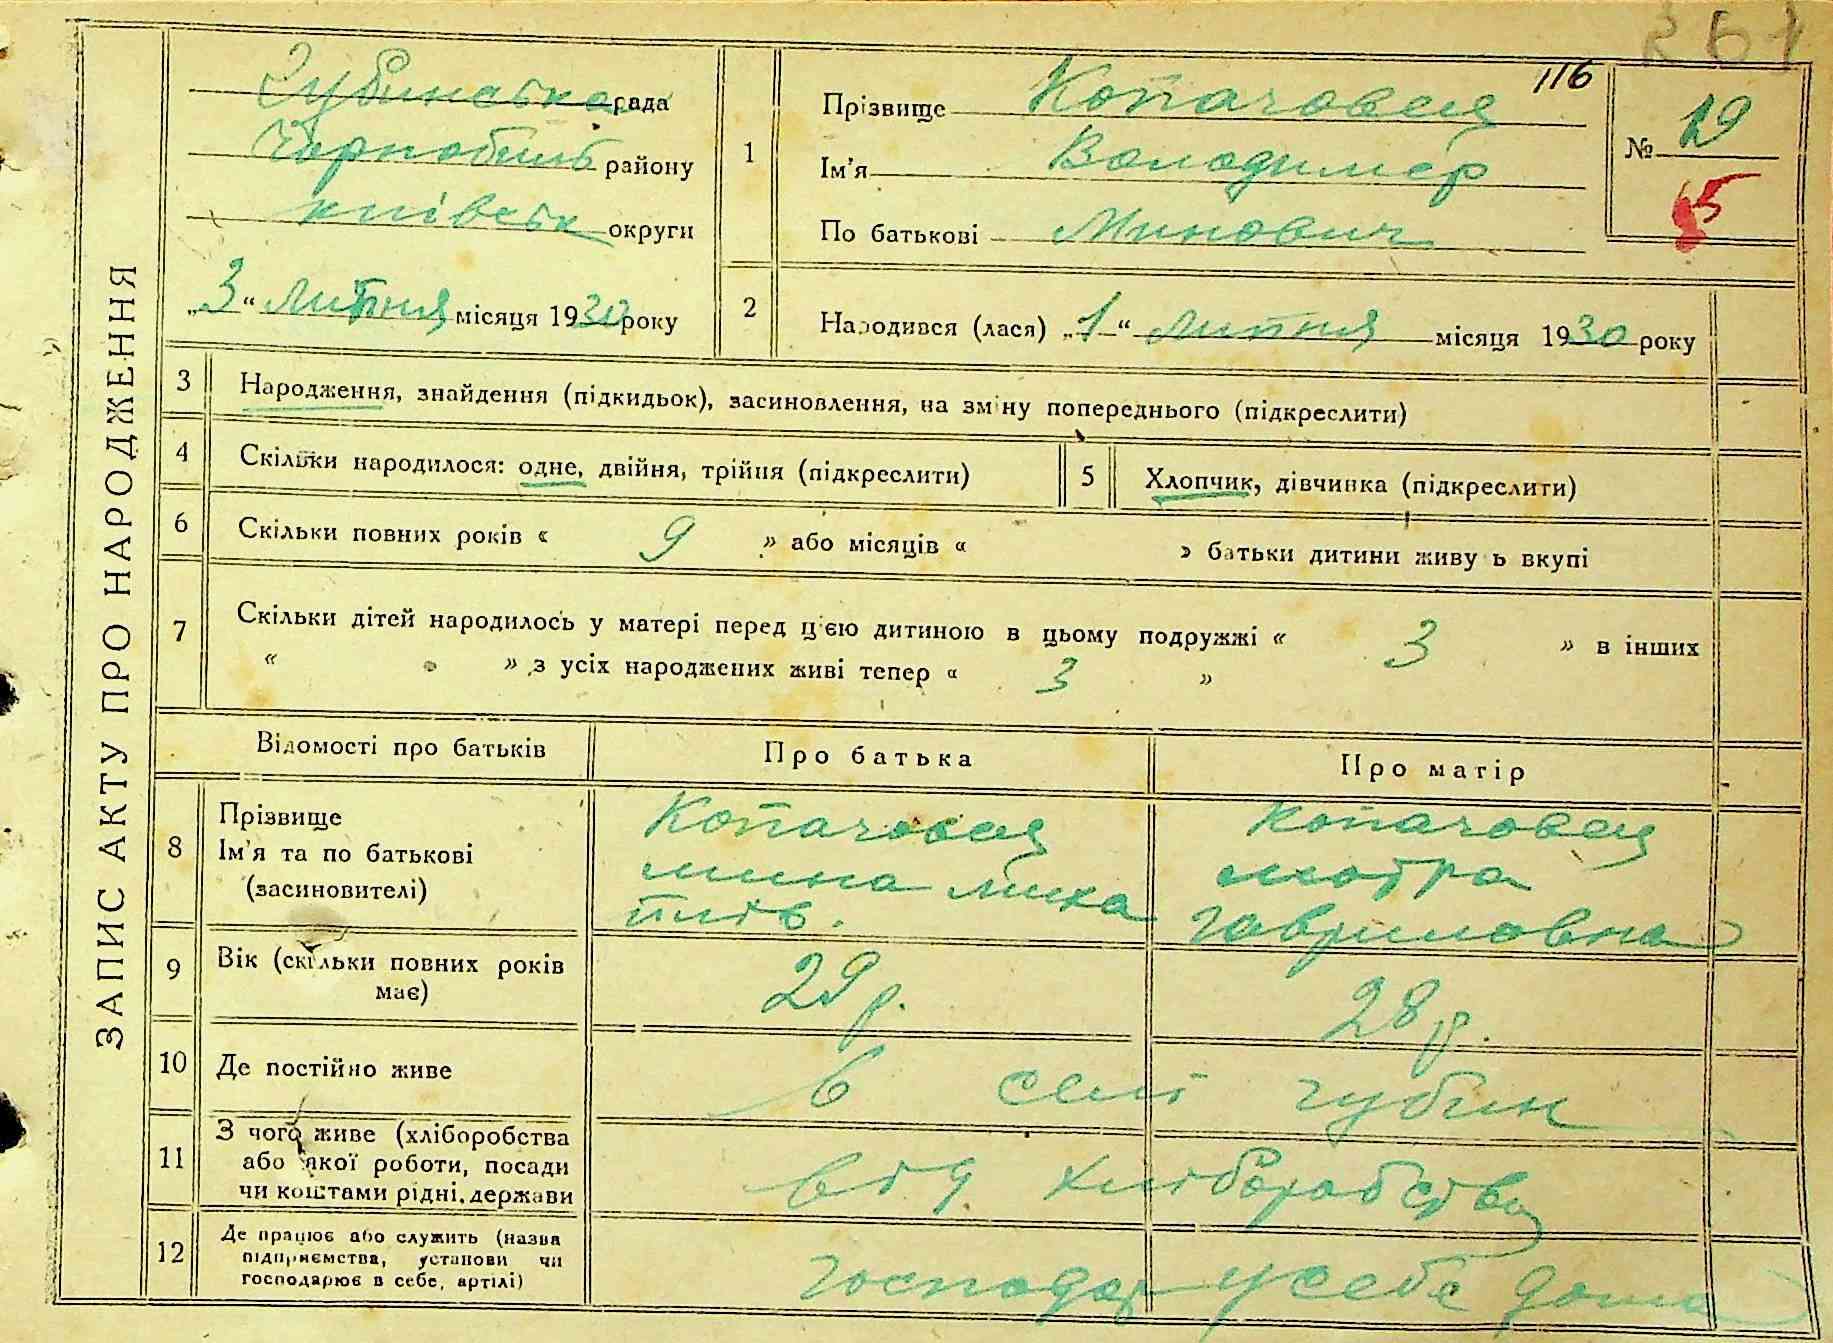 261
116
Губинська рада
Чорнобиль району
київськ округи
„3“ Липня місяця 1930 року
ЗАПИС АКТУ ПРО НАРОДЖЕННЯ
1
Прізвище Копачовец
Ім'я Володимер
По батькові Минович
№ 19
65
2
Народився (лася) „1“ Липня місяця 1930 року
3
Народження, знайдення (підкидьок), засиновлення, на зміну попереднього (підкреслити)
4
Скільки народилося: одне, двійня, трійня (підкреслити)
5
Хлопчик, дівчинка (підкреслити)
6
Скільки повних років « 9 » або місяців « » батьки дитини живуть вкупі
7
Скільки дітей народилось у матері перед цією дитиною в цьому подружжі « 3 » в інших
« » з усіх народжених живі тепер « 3 »
Відомості про батьків
Про батька
Про матір
8
Прізвище
Ім'я та по батькові
(засиновителі)
Копачовец
мина миха
Копачовец
мотра
гавриловна
9
Вік (скільки повних років
має)
29 р.
28 р.
10
Де постійно живе
в селі губин
11
З чого живе (хліборобства
або якої роботи, посади
чи коштами рідні, держави
від хліборобства
12
Де працює або служить (назва
підприємства, установи чи
господарює в себе, артілі)
господар у себе дома